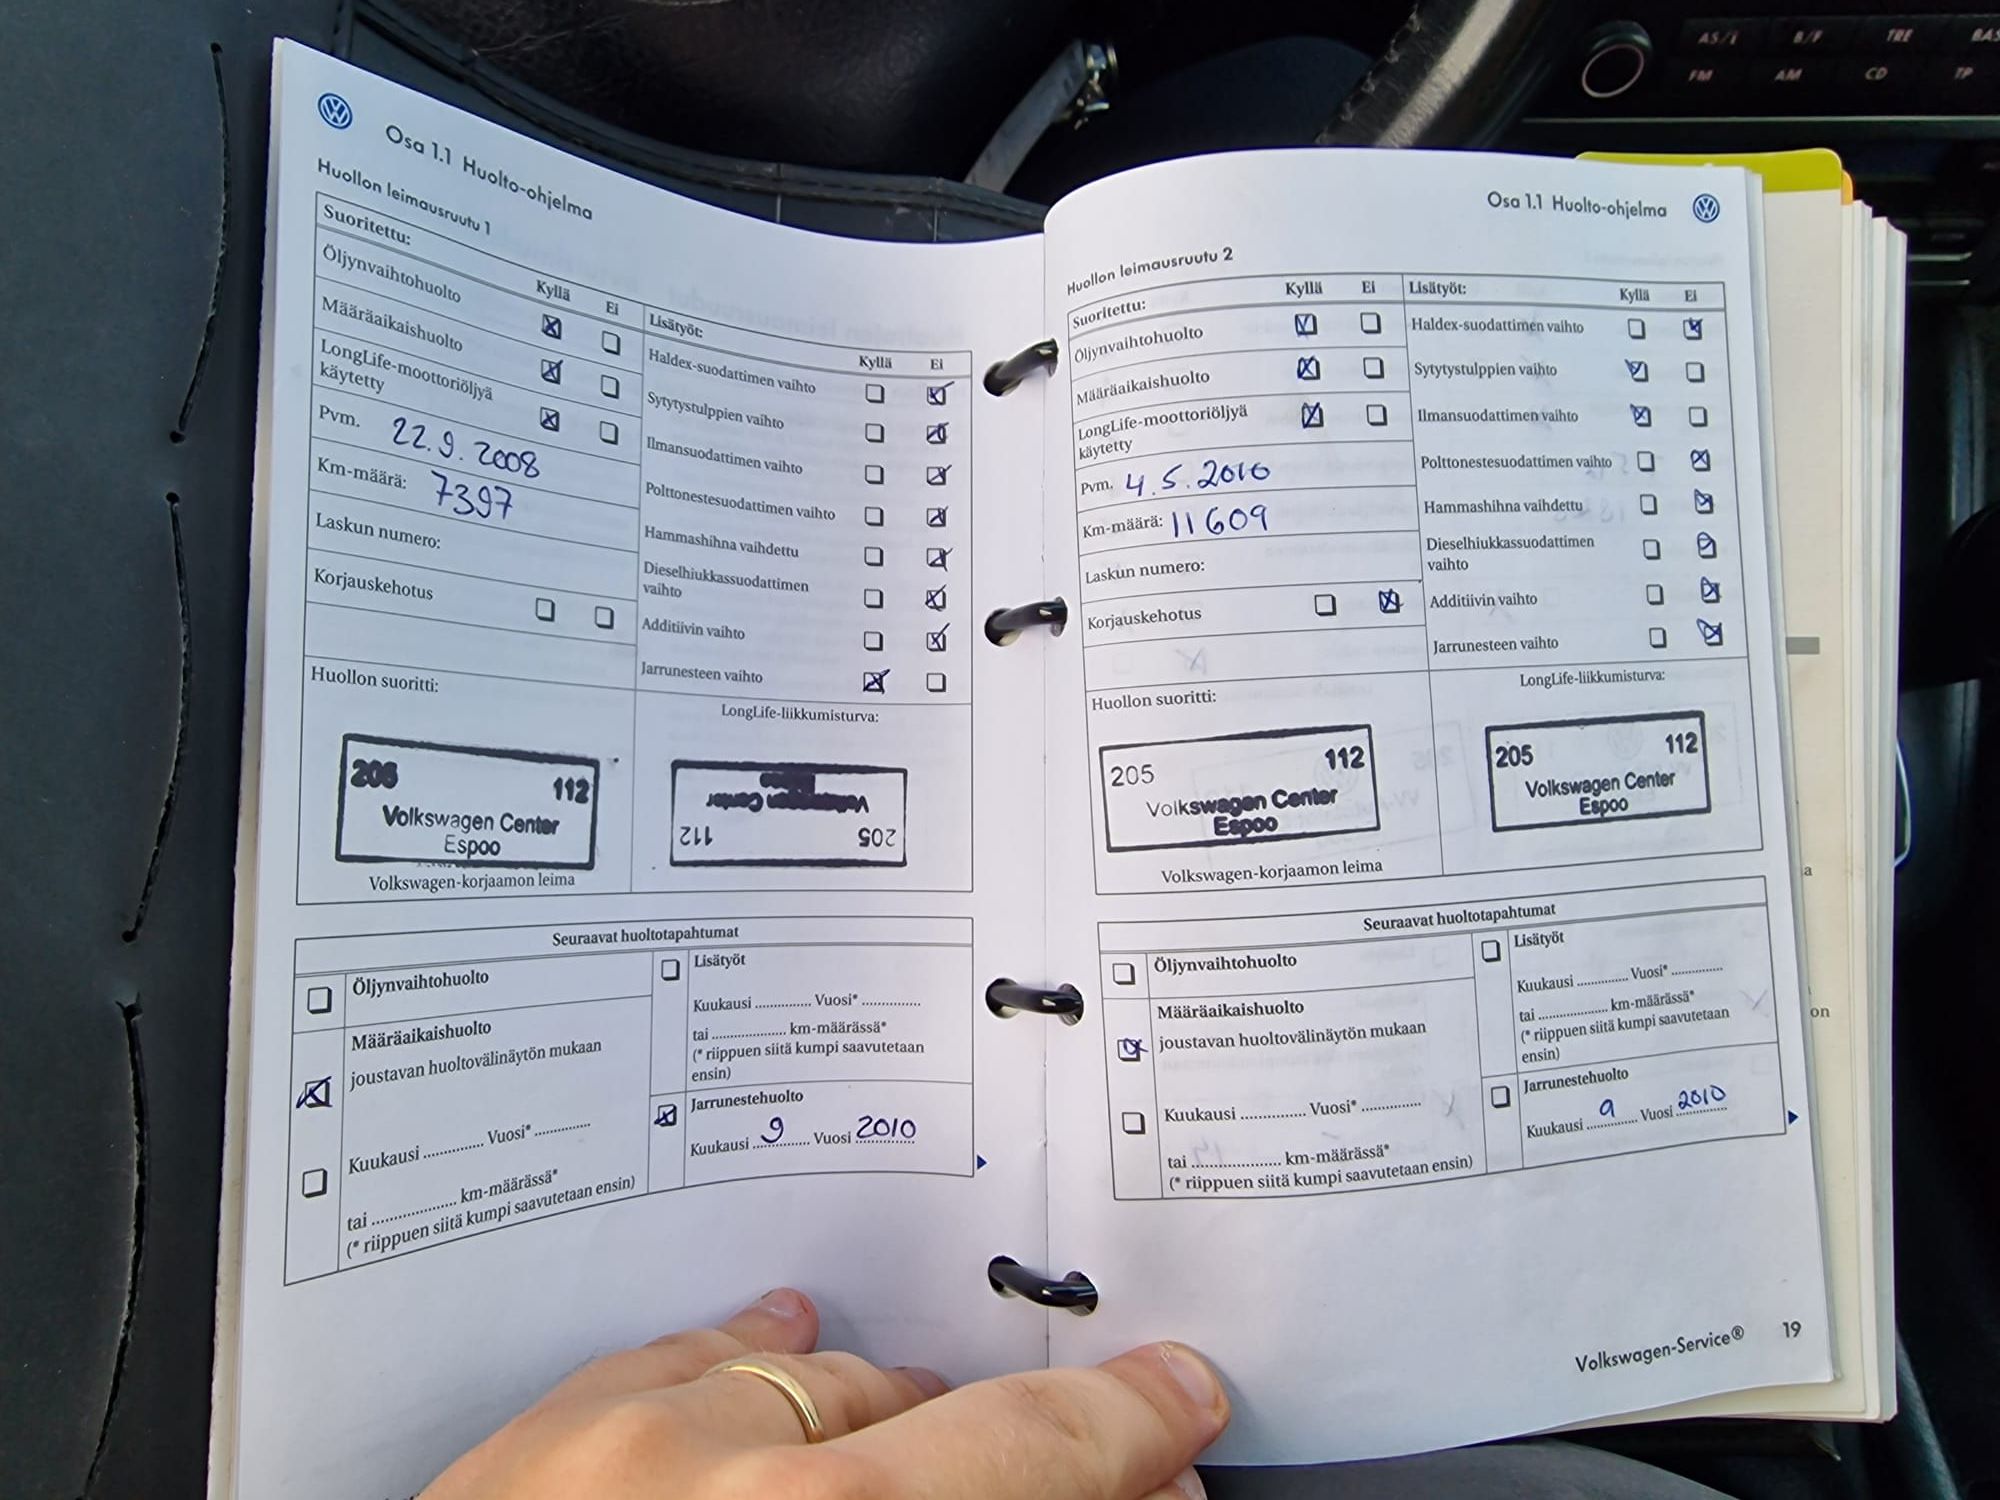 AS/I B/F TRE BAS
FM AM CD TP
Osa 1.1 Huolto-ohjelma
Huollon leimausruutu 1
Suoritettu:
Kyllä Ei
Öljynvaihtohuolto
Määräaikaishuolto
LongLife-moottoriöljyä
käytetty
Pvm. 22.9.2008
Km-määrä: 7397
Laskun numero:
Korjauskehotus
Huollon suoritti:
205 112
Volkswagen Center
Espoo
Volkswagen-korjaamon leima
Lisätyöt:
Kyllä Ei
Haldex-suodattimen vaihto
Sytytystulppien vaihto
Ilmansuodattimen vaihto
Polttonestesuodattimen vaihto
Hammashihna vaihdettu
Dieselhiukkassuodattimen
vaihto
Additiivin vaihto
Jarrunesteen vaihto
LongLife-liikkumisturva:
205 112
Volkswagen Center
Seuraavat huoltotapahtumat
Öljynvaihtohuolto
Määräaikaishuolto
joustavan huoltovälinäytön mukaan
Kuukausi .............. Vuosi* .............
tai .................... km-määrässä*
(* riippuen siitä kumpi saavutetaan ensin)
Lisätyöt
Kuukausi ............. Vuosi* .............
tai .................. km-määrässä*
(* riippuen siitä kumpi saavutetaan
ensin)
Jarrunestehuolto
Kuukausi 9 Vuosi 2010
Osa 1.1 Huolto-ohjelma
Huollon leimausruutu 2
Suoritettu: Kyllä Ei
Öljynvaihtohuolto
Määräaikaishuolto
LongLife-moottoriöljyä
käytetty
Pvm. 4.5.2010
Km-määrä: 11609
Laskun numero:
Korjauskehotus
Huollon suoritti:
205 112
Volkswagen Center
Espoo
Volkswagen-korjaamon leima
Lisätyöt: Kyllä Ei
Haldex-suodattimen vaihto
Sytytystulppien vaihto
Ilmansuodattimen vaihto
Polttonestesuodattimen vaihto
Hammashihna vaihdettu
Dieselhiukkassuodattimen
vaihto
Additiivin vaihto
Jarrunesteen vaihto
LongLife-liikkumisturva:
205 112
Volkswagen Center
Espoo
Seuraavat huoltotapahtumat
Öljynvaihtohuolto
Määräaikaishuolto
joustavan huoltovälinäytön mukaan
Kuukausi .............. Vuosi* .............
tai .................... km-määrässä*
(* riippuen siitä kumpi saavutetaan ensin)
Lisätyöt
Kuukausi ............. Vuosi* .............
tai .................. km-määrässä*
(* riippuen siitä kumpi saavutetaan
ensin)
Jarrunestehuolto
Kuukausi 9 Vuosi 2010
Volkswagen-Service® 19
a
on